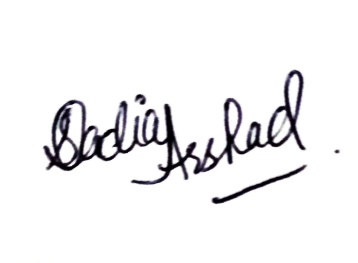 Sadia Asshad